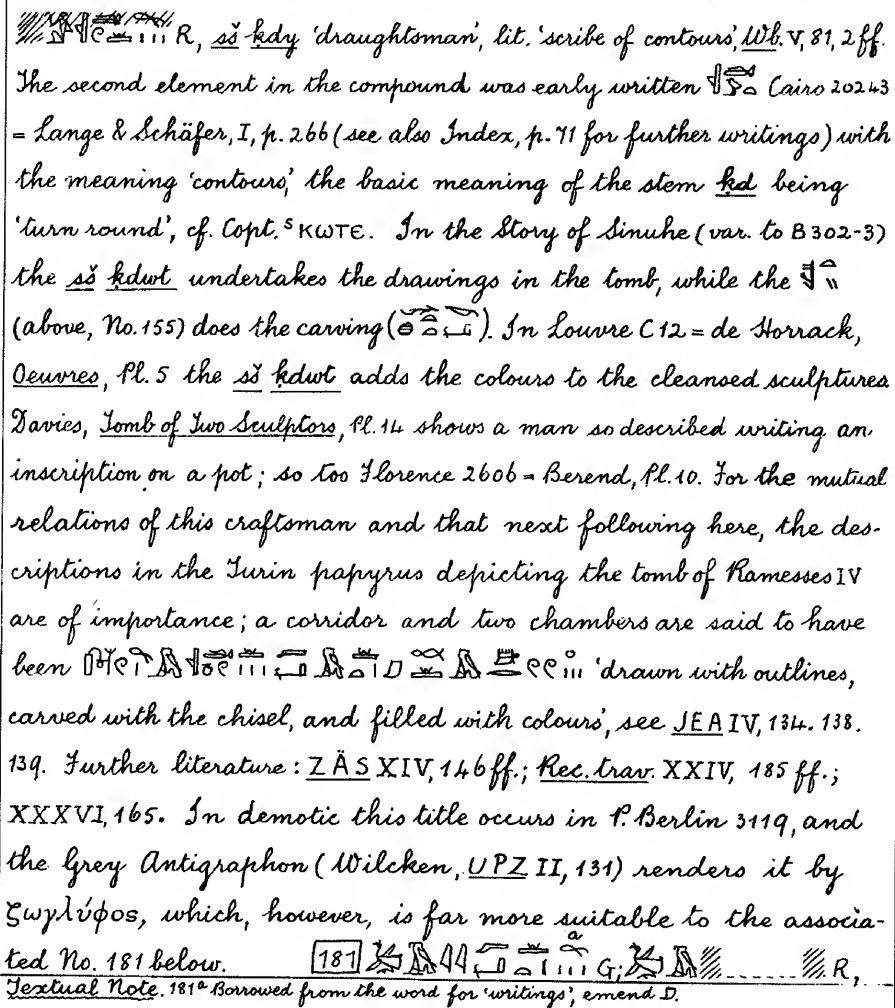 R, sš ḳdy 'draughtsman', lit. 'scribe of contours', Wb. V, 81, 2 ff.
The second element in the compound was early written Cairo 20243
= Lange & Schäfer, I, p. 266 (see also Index, p. 71 for further writings) with
the meaning 'contours,' the basic meaning of the stem ḳd being
'turn round', cf. Copt. ˢ ⲕⲱⲧⲉ. In the Story of Sinuhe (var. to B 302-3)
the sš ḳdwt undertakes the drawings in the tomb, while the
(above, No. 155) does the carving ( ). In Louvre C 12 = de Horrack,
Oeuvres, Pl. 5 the sš ḳdwt adds the colours to the cleansed sculptures
Davies, Tomb of Two Sculptors, Pl. 14 shows a man so described writing an
inscription on a pot; so too Florence 2606 = Berend, Pl. 10. For the mutual
relations of this craftsman and that next following here, the des-
criptions in the Turin papyrus depicting the tomb of Ramesses IV
are of importance; a corridor and two chambers are said to have
been 'drawn with outlines,
carved with the chisel, and filled with colours', see JEA IV, 134. 138.
139. Further literature: ZÄS XIV, 146 ff.; Rec. trav. XXIV, 185 ff.;
XXXVI, 165. In demotic this title occurs in P. Berlin 3119, and
the Grey Antigraphon (Wilcken, UPZ II, 131) renders it by
ζωγλύφος, which, however, is far more suitable to the associa-
ted No. 181 below. 181 a G; R,
Textual Note. 181ᵃ Borrowed from the word for 'writings', emend D.